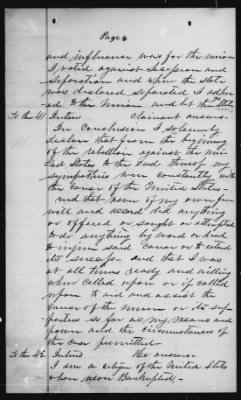 Page 6
and influence was for the Union
I voted against Secession and
Separation and when the State
was declared separated I adher-
ed to the Union and let the State
To the 41 Inter claimant answers.
In Conclusion I solemnly
declare that from the beginning
of the rebellion against the Uni-
ted States to the End thereof my
sympathies were constantly with
the Cause of the United States-
and that never of my own free
will and accord did anything
or offered or sought or attempted
to do anything by word or deed
to injure said Cause or to retard
its success- and that I was
at all times ready and willing
when called upon or if called
upon to aid and assist the
Cause of the Union or its sup-
porters so far as my means and
power and the circumstances of
the case permitted-
To the 42 Inter He answers-
I am a citizen of the United States
& have never Bankrupted.-